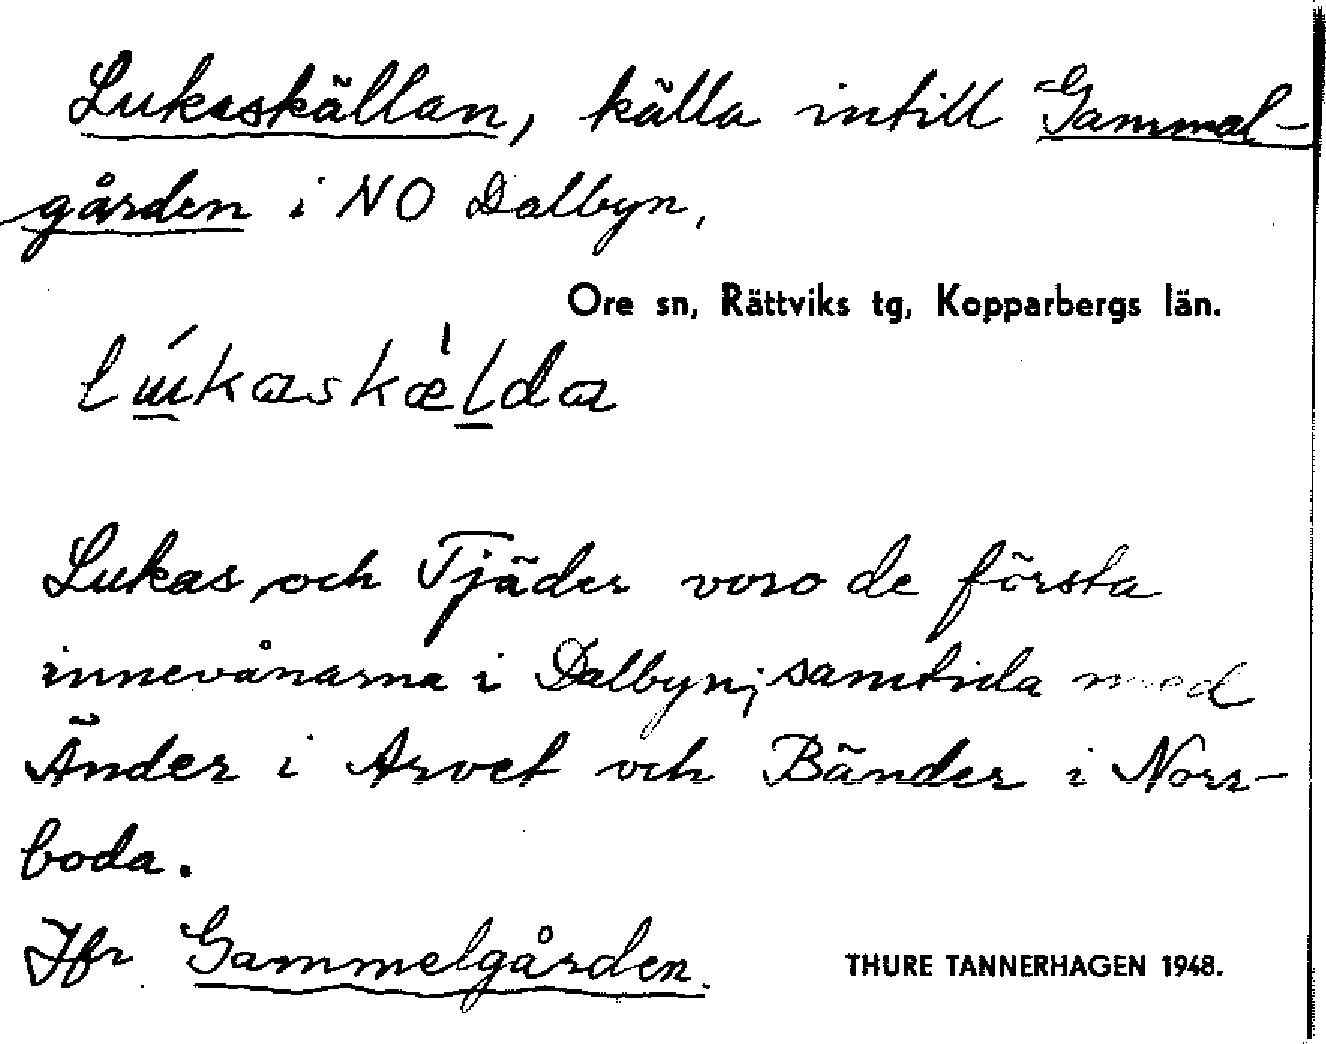 Lukaskällan, källa intill Gammal-
gården i NO Dalbyn,
Ore sn, Rättviks tg, Kopparbergs län.
lúkaskæ̀lda
Lukas och Tjäder voro de första
innevånarna i Dalbyn; samtida med
Änder i Arvet och Bänder i Norr-
boda.
Jfr Gammelgården.
THURE TANNERHAGEN 1948.